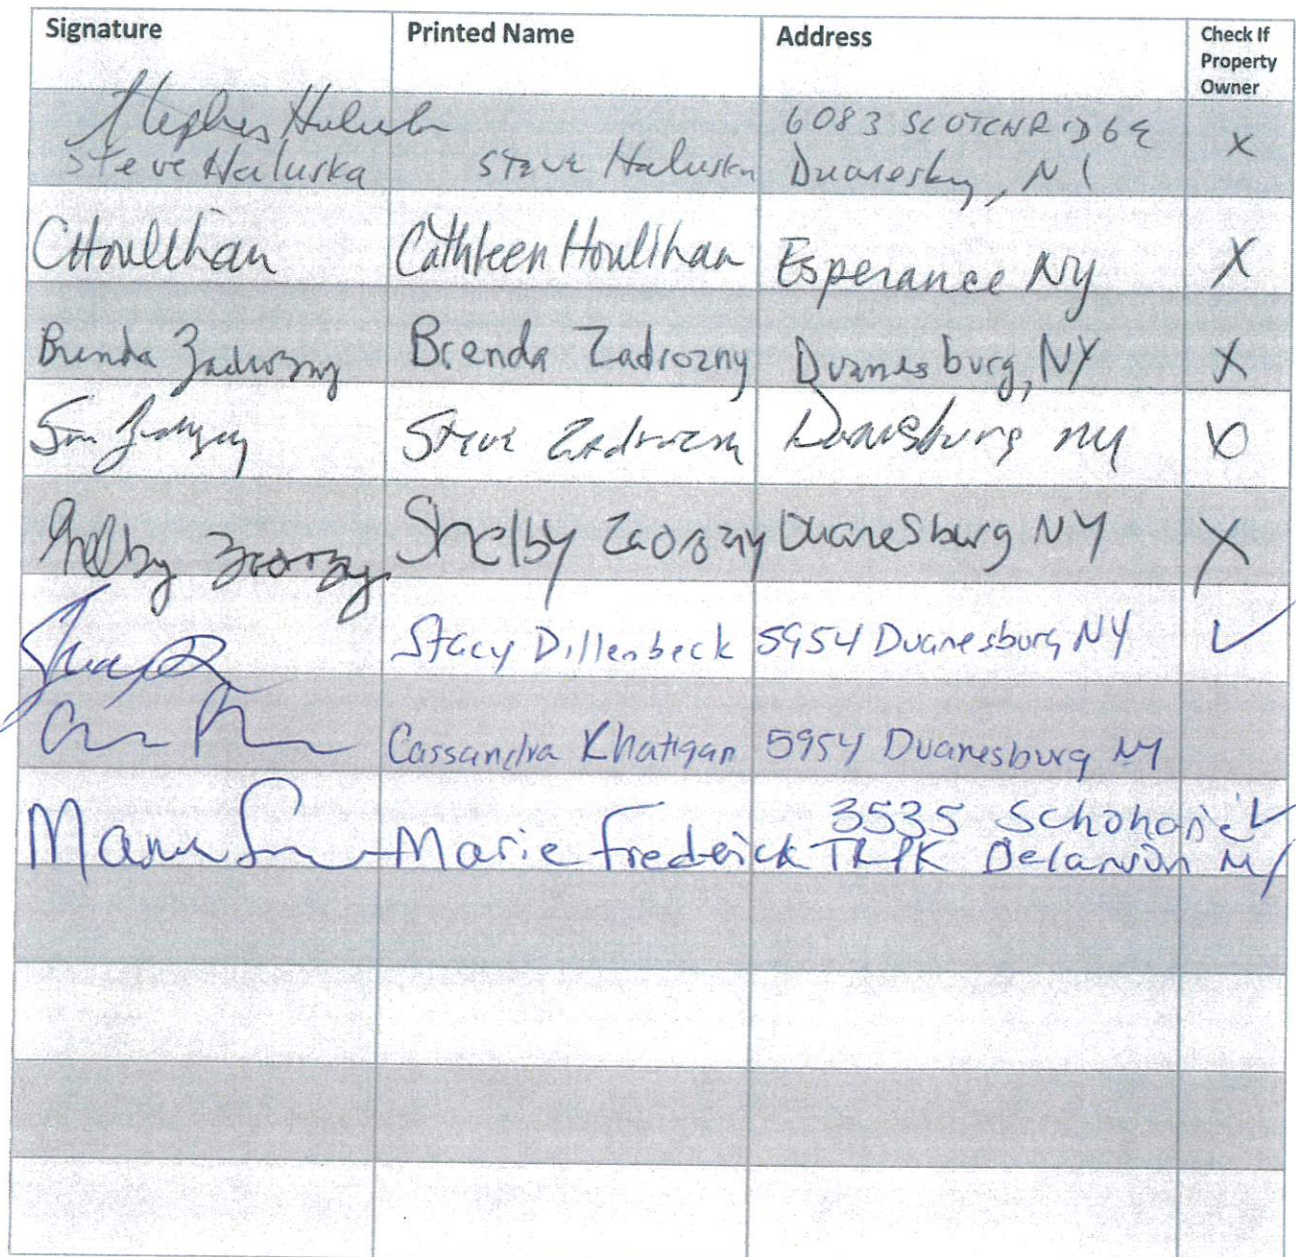 Signature Printed Name Address Check If Property Owner
Stephen Haluska 6083 SCOTCHRIDGE X
Steve Haluska Steve Haluska Duanesburg, NY
CHoulihan Cathleen Houlihan Esperance NY X
Brenda Zadrozny Brenda Zadrozny Duanesburg, NY X
Steve Zadrozny Duanesburg ny
Shelby Zadrozny Shelby Zadrozny Duanesburg NY X
Stacy Dillenbeck 5954 Duanesburg NY ✓
Cassandra Khatigan 5954 Duanesburg NY
3535 Schoharie ✓
Marie Frederick TRPK Delanson NY